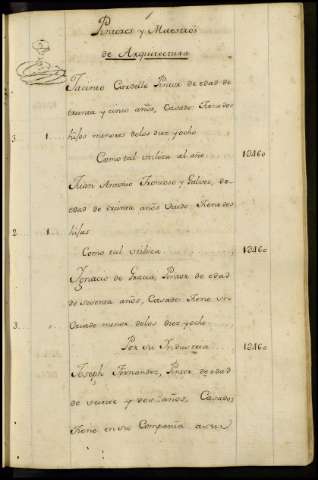 Pintores y Maestros
de Arquitectura
Jacinto Cardelle Pintor de edad de
treinta y cinco años, Casado: tiene dos
3 1 hijos menores de los diez y ocho
Como tal utiliza al año 1046o
Juan Antonio Troncoso y Galvez, de
edad de treinta años Viudo: tiene dos
2 1 hijas
Como tal utiliza 1046o
Ignacio de Gracia, Pintor de edad
de sesenta años, Casado: tiene un
3 Criado menor de los diez y ocho
Por su Industria 1046o
Joseph Fernandez, Pintor de edad
de veinte y dos años, Casado:
tiene en su Compañia a su